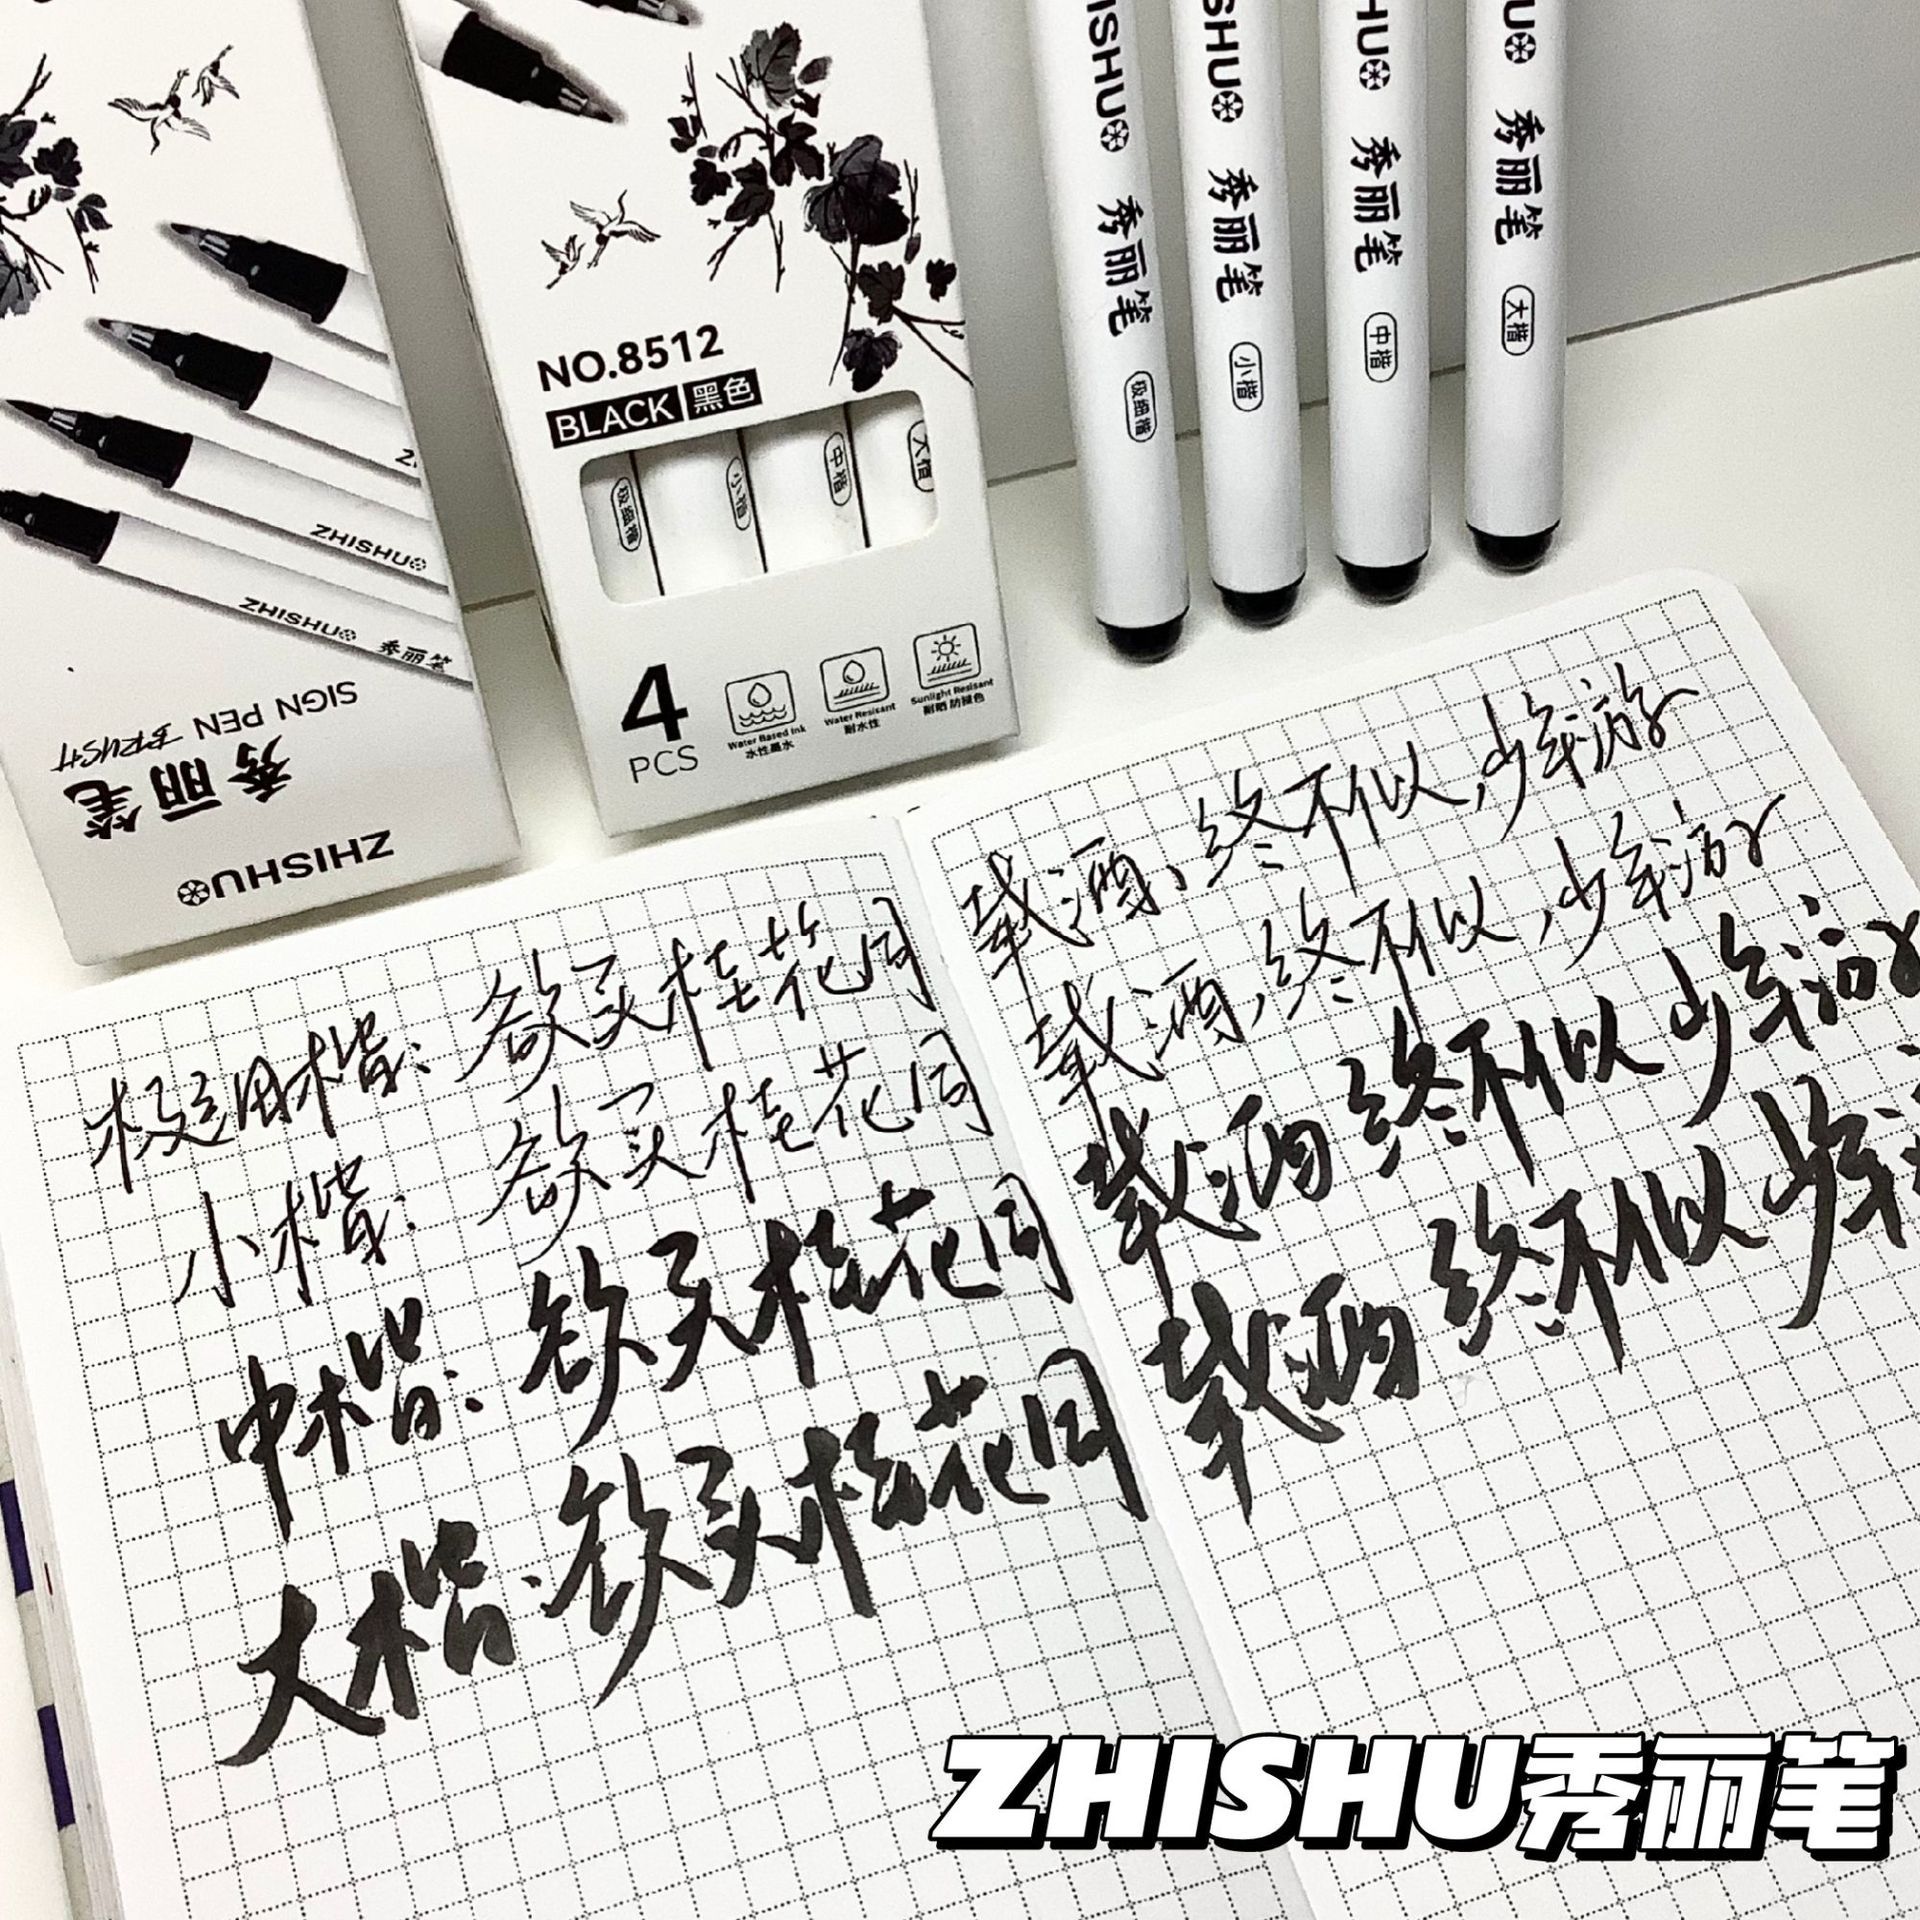 NO.8512
BLACK 黑色
极细楷
小楷
中楷
大楷
4
PCS
Water Based Ink
水性墨水
Water Resisant
耐水性
Sunlight Resisant
耐晒 防褪色
ZHISHU
秀丽笔
ZHISHU
秀丽笔
SIGN PEN BRUSH
ZHISHU
ISHU 秀丽笔 极细楷
SHU 秀丽笔 小楷
HU 秀丽笔 中楷
U 秀丽笔 大楷
极细楷：欲买桂花同
小楷：欲买桂花同
中楷：欲买桂花同
大楷：欲买桂花同
载酒，终不似，少年游
载酒，终不似，少年游
载酒 终不似 少年游
载酒 终不似 少年
ZHISHU秀丽笔